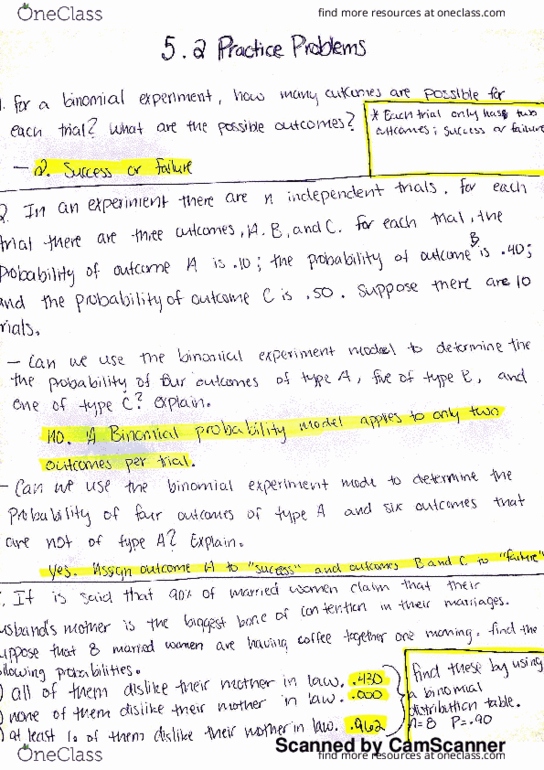 OneClass
find more resources at oneclass.com
5.2 Practice Problems
1. For a binomial experiment, how many outcomes are possible for
each trial? What are the possible outcomes?
* Each trial only has two
outcomes; success or failure
- 2. Success or failure
2. In an experiment there are n independent trials. For each
trial there are three outcomes, A, B, and C. For each trial, the
probability of outcome A is .10; the probability of outcome B is .40;
and the probability of outcome C is .50. Suppose there are 10
rials.
- Can we use the binomial experiment model to determine the
the probability of four outcomes of type A, five of type B, and
one of type C? Explain.
No. A Binomial probability model applies to only two
outcomes per trial.
- Can we use the binomial experiment mode to determine the
probability of four outcomes of type A and six outcomes that
are not of type A? Explain.
Yes. Assign outcome A to "sucess" and outcomes B and C to "failure"
. It is said that 90% of married women claim that their
usband's mother is the biggest bone of contention in their marriages.
uppose that 8 married women are having coffee together one morning. find the
ollowing probabilities.
) all of them dislike their mother in law. .430
) none of them dislike their mother in law. .000
) at least 6 of them dislike their mother in law. .962
find these by using
a binomial
distribution table.
n=8 P=.90
Scanned by CamScanner
OneClass
find more resources at oneclass.com